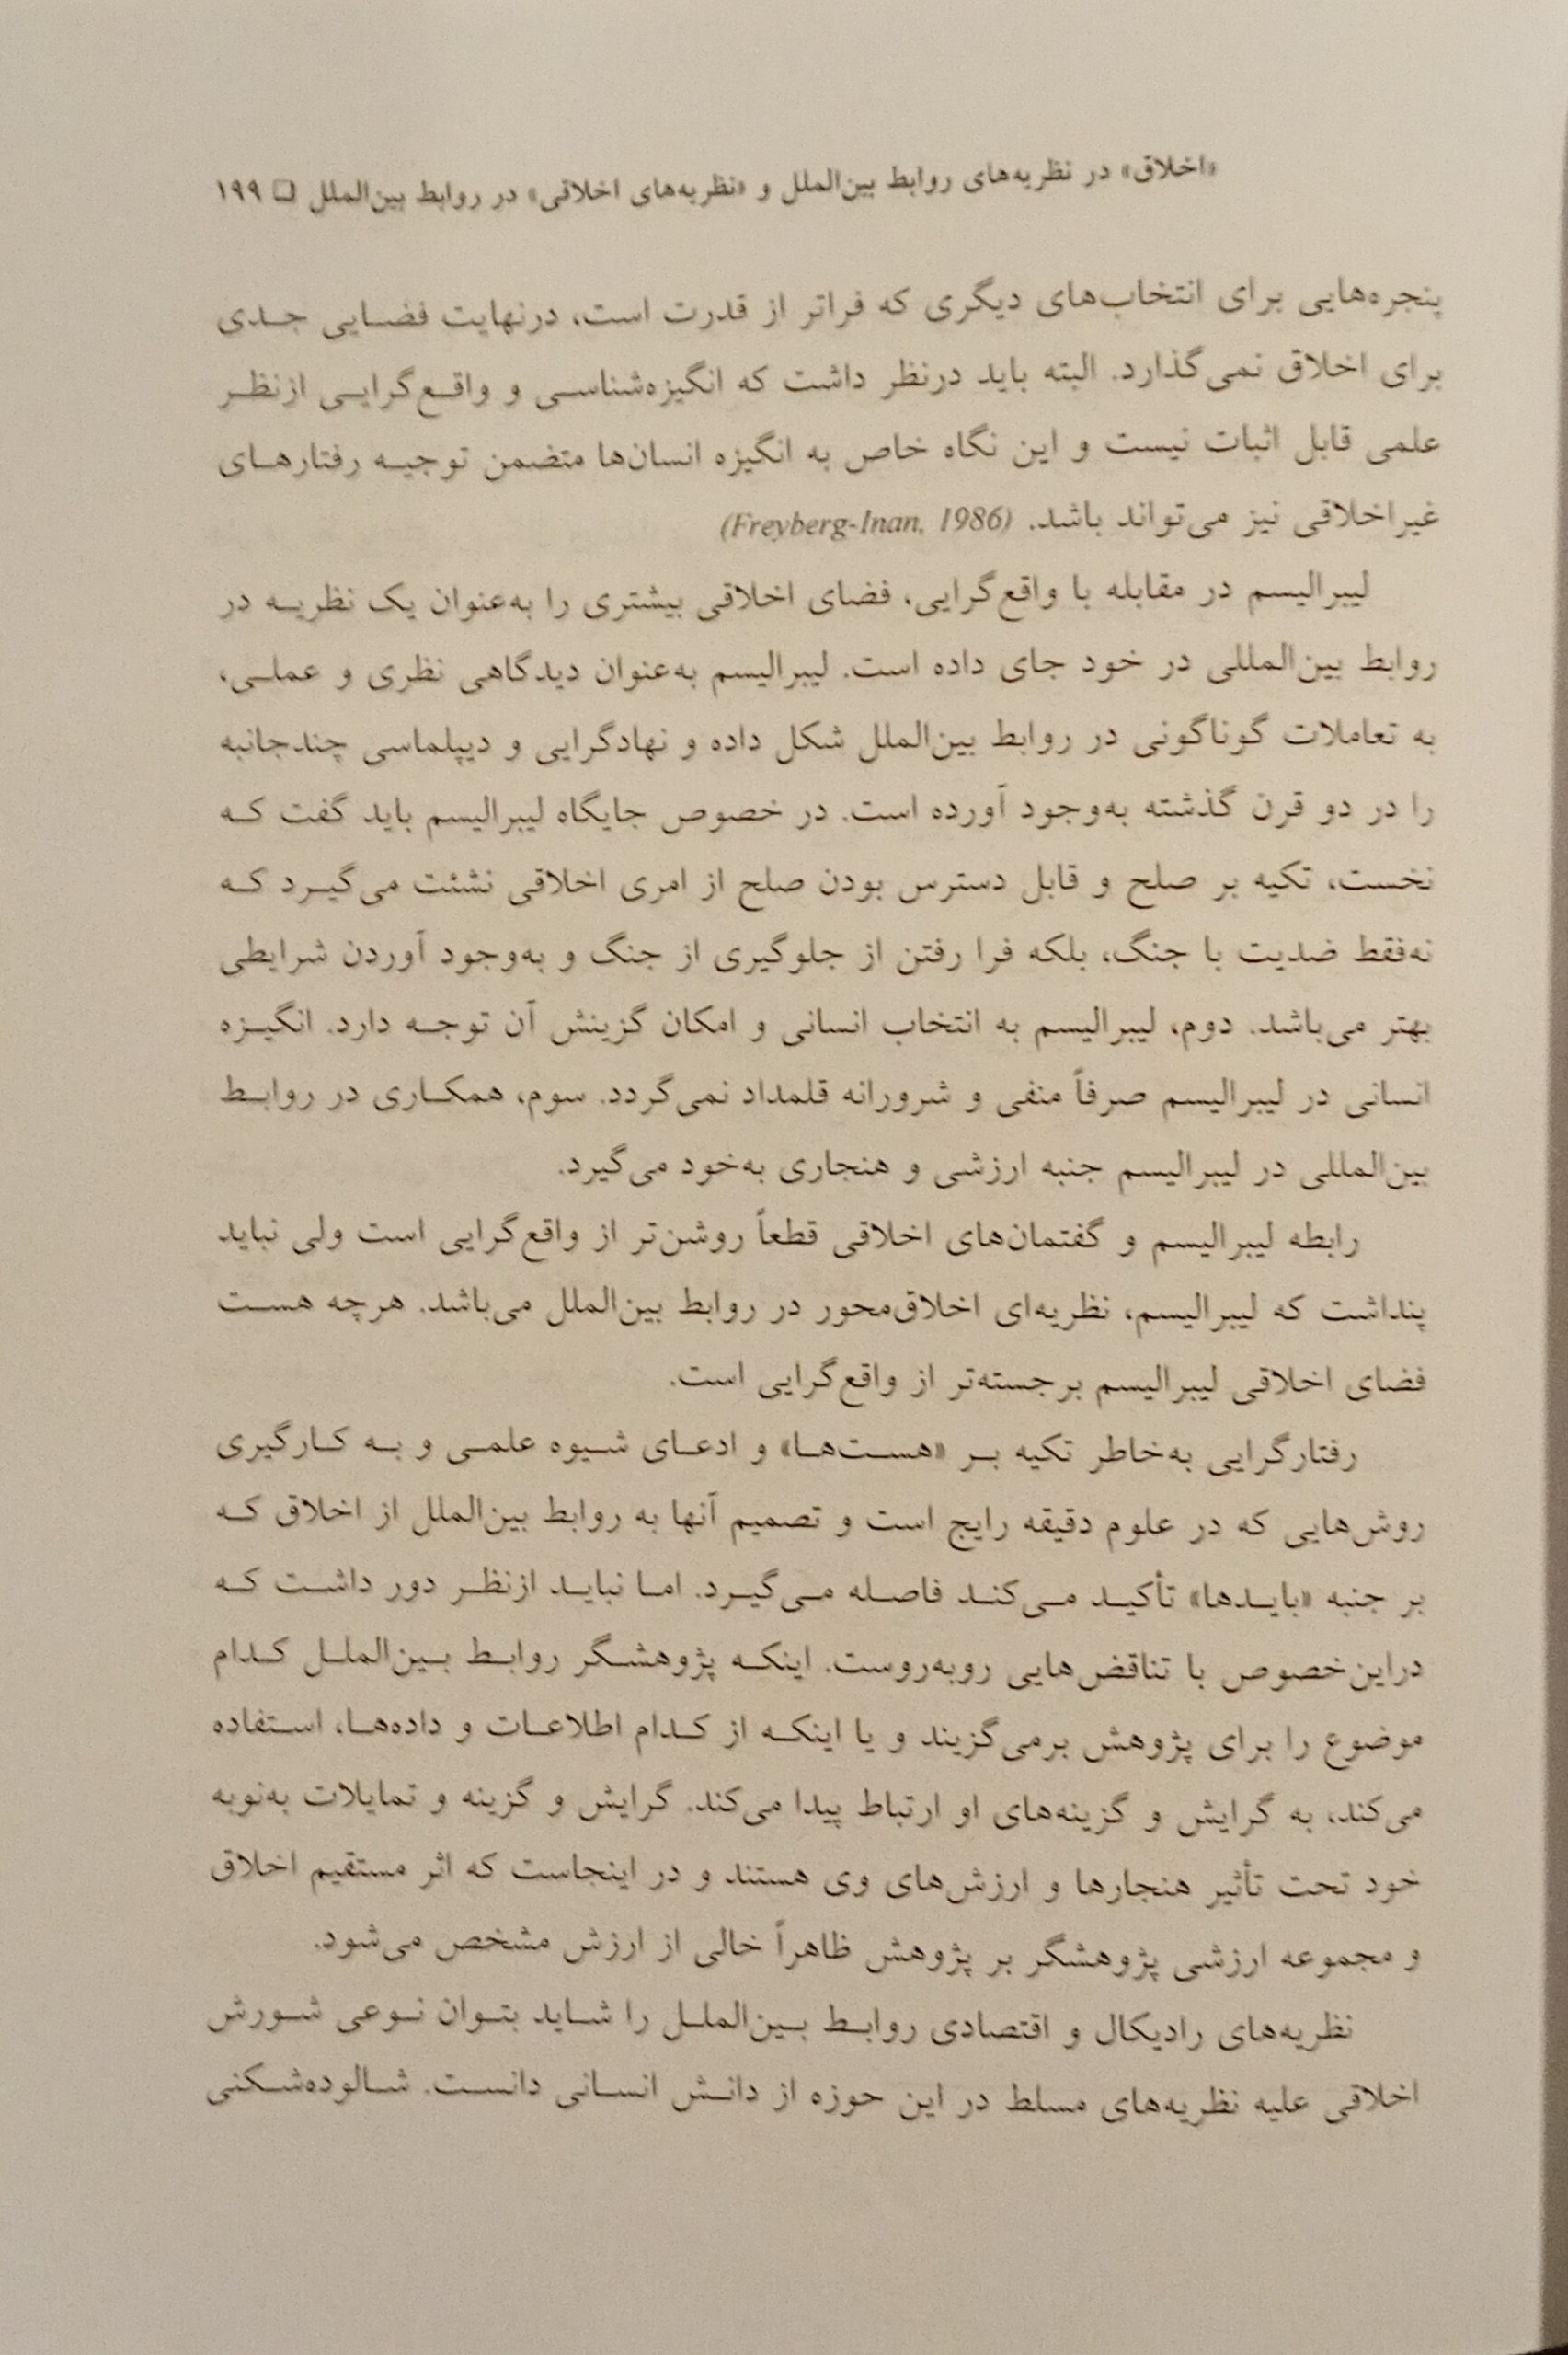 «اخلاق» در نظریه‌های روابط بین‌الملل و «نظریه‌های اخلاقی» در روابط بین‌الملل □ ۱۹۹
پنجره‌هایی برای انتخاب‌های دیگری که فراتر از قدرت است، درنهایت فضایی جدی
برای اخلاق نمی‌گذارد. البته باید درنظر داشت که انگیزه‌شناسی و واقع‌گرایی ازنظر
علمی قابل اثبات نیست و این نگاه خاص به انگیزه انسان‌ها متضمن توجیه رفتارهای
غیراخلاقی نیز می‌تواند باشد. (Freyberg-Inan, 1986)
لیبرالیسم در مقابله با واقع‌گرایی، فضای اخلاقی بیشتری را به‌عنوان یک نظریه در
روابط بین‌المللی در خود جای داده است. لیبرالیسم به‌عنوان دیدگاهی نظری و عملی،
به تعاملات گوناگونی در روابط بین‌الملل شکل داده و نهادگرایی و دیپلماسی چندجانبه
را در دو قرن گذشته به‌وجود آورده است. در خصوص جایگاه لیبرالیسم باید گفت که
نخست، تکیه بر صلح و قابل دسترس بودن صلح از امری اخلاقی نشئت می‌گیرد که
نه‌فقط ضدیت با جنگ، بلکه فرا رفتن از جلوگیری از جنگ و به‌وجود آوردن شرایطی
بهتر می‌باشد. دوم، لیبرالیسم به انتخاب انسانی و امکان گزینش آن توجه دارد. انگیزه
انسانی در لیبرالیسم صرفاً منفی و شرورانه قلمداد نمی‌گردد. سوم، همکاری در روابط
بین‌المللی در لیبرالیسم جنبه ارزشی و هنجاری به‌خود می‌گیرد.
رابطه لیبرالیسم و گفتمان‌های اخلاقی قطعاً روشن‌تر از واقع‌گرایی است ولی نباید
پنداشت که لیبرالیسم، نظریه‌ای اخلاق‌محور در روابط بین‌الملل می‌باشد. هرچه هست
فضای اخلاقی لیبرالیسم برجسته‌تر از واقع‌گرایی است.
رفتارگرایی به‌خاطر تکیه بر «هست‌ها» و ادعای شیوه علمی و به کارگیری
روش‌هایی که در علوم دقیقه رایج است و تصمیم آنها به روابط بین‌الملل از اخلاق که
بر جنبه «بایدها» تأکید می‌کند فاصله می‌گیرد. اما نباید ازنظر دور داشت که
دراین‌خصوص با تناقض‌هایی روبه‌روست. اینکه پژوهشگر روابط بین‌الملل کدام
موضوع را برای پژوهش برمی‌گزیند و یا اینکه از کدام اطلاعات و داده‌ها، استفاده
می‌کند، به گرایش و گزینه‌های او ارتباط پیدا می‌کند. گرایش و گزینه و تمایلات به‌نوبه
خود تحت تأثیر هنجارها و ارزش‌های وی هستند و در اینجاست که اثر مستقیم اخلاق
و مجموعه ارزشی پژوهشگر بر پژوهش ظاهراً خالی از ارزش مشخص می‌شود.
نظریه‌های رادیکال و اقتصادی روابط بین‌الملل را شاید بتوان نوعی شورش
اخلاقی علیه نظریه‌های مسلط در این حوزه از دانش انسانی دانست. شالوده‌شکنی